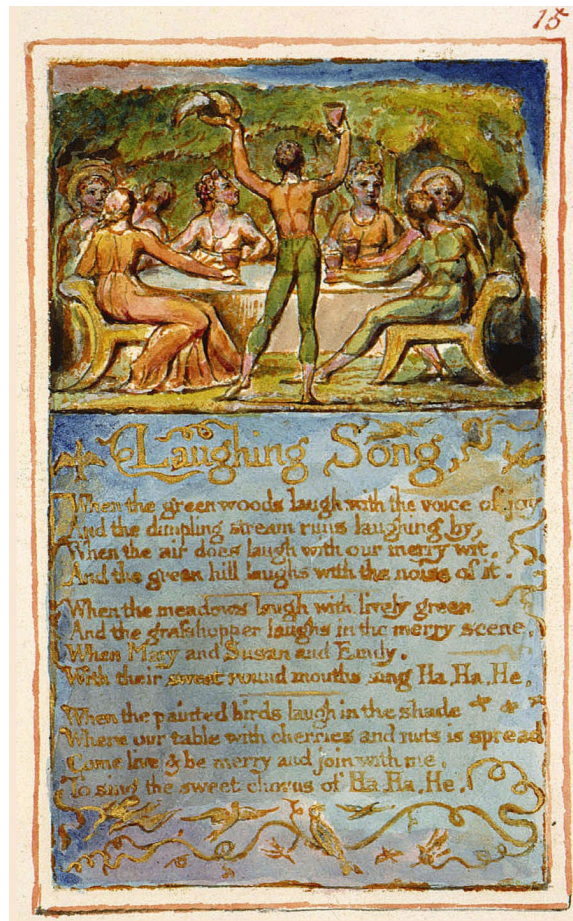 15
Laughing Song,
When the green woods laugh with the voice of joy
And the dimpling stream runs laughing by,
When the air does laugh with our merry wit,
And the green hill laughs with the noise of it.
When the meadows laugh with lively green
And the grasshopper laughs in the merry scene,
When Mary and Susan and Emily,
With their sweet round mouths sing Ha, Ha, He,
When the painted birds laugh in the shade
Where our table with cherries and nuts is spread
Come live & be merry and join with me,
To sing the sweet chorus of Ha, Ha, He,